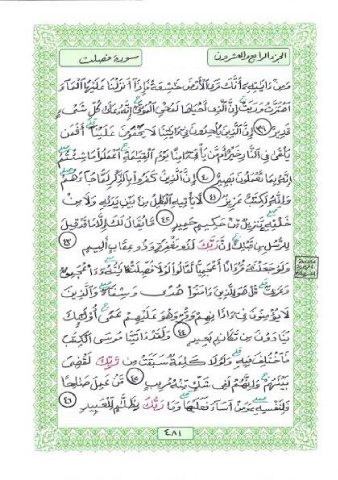 الجزء الرابع والعشرون
سورة فصلت
وَمِنْ ءَايَٰتِهِۦٓ أَنَّكَ تَرَى ٱلْأَرْضَ خَٰشِعَةً فَإِذَآ أَنزَلْنَا عَلَيْهَا ٱلْمَآءَ
ٱهْتَزَّتْ وَرَبَتْ إِنَّ ٱلَّذِىٓ أَحْيَاهَا لَمُحْىِ ٱلْمَوْتَىٰٓ إِنَّهُۥ عَلَىٰ كُلِّ شَىْءٍ
قَدِيرٌ ٣٩ إِنَّ ٱلَّذِينَ يُلْحِدُونَ فِىٓ ءَايَٰتِنَا لَا يَخْفَوْنَ عَلَيْنَآ أَفَمَن
يُلْقَىٰ فِى ٱلنَّارِ خَيْرٌ أَم مَّن يَأْتِىٓ ءَامِنًا يَوْمَ ٱلْقِيَٰمَةِ ٱعْمَلُوا۟ مَا شِئْتُمْ
إِنَّهُۥ بِمَا تَعْمَلُونَ بَصِيرٌ ٤٠ إِنَّ ٱلَّذِينَ كَفَرُوا۟ بِٱلذِّكْرِ لَمَّا جَآءَهُمْ
وَإِنَّهُۥ لَكِتَٰبٌ عَزِيزٌ ٤١ لَّا يَأْتِيهِ ٱلْبَٰطِلُ مِنۢ بَيْنِ يَدَيْهِ وَلَا مِنْ
خَلْفِهِۦ تَنزِيلٌ مِّنْ حَكِيمٍ حَمِيدٍ ٤٢ مَّا يُقَالُ لَكَ إِلَّا مَا قَدْ قِيلَ
لِلرُّسُلِ مِن قَبْلِكَ إِنَّ رَبَّكَ لَذُو مَغْفِرَةٍ وَذُو عِقَابٍ أَلِيمٍ ٤٣
وَلَوْ جَعَلْنَٰهُ قُرْءَانًا أَعْجَمِيًّا لَّقَالُوا۟ لَوْلَا فُصِّلَتْ ءَايَٰتُهُۥٓ ءَا۬عْجَمِىٌّ
وَعَرَبِىٌّ قُلْ هُوَ لِلَّذِينَ ءَامَنُوا۟ هُدًى وَشِفَآءٌ وَٱلَّذِينَ
لَا يُؤْمِنُونَ فِىٓ ءَاذَانِهِمْ وَقْرٌ وَهُوَ عَلَيْهِمْ عَمًى أُو۟لَٰٓئِكَ
يُنَادَوْنَ مِن مَّكَانٍۭ بَعِيدٍ ٤٤ وَلَقَدْ ءَاتَيْنَا مُوسَى ٱلْكِتَٰبَ
فَٱخْتُلِفَ فِيهِ وَلَوْلَا كَلِمَةٌ سَبَقَتْ مِن رَّبِّكَ لَقُضِىَ
بَيْنَهُمْ وَإِنَّهُمْ لَفِى شَكٍّ مِّنْهُ مُرِيبٍ ٤٥ مَّنْ عَمِلَ صَٰلِحًا
فَلِنَفْسِهِۦ وَمَنْ أَسَآءَ فَعَلَيْهَا وَمَا رَبُّكَ بِظَلَّٰمٍ لِّلْعَبِيدِ ٤٦
٤٨١